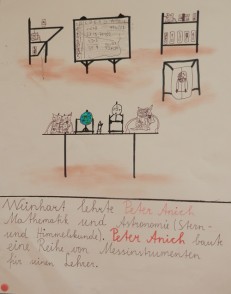 Weinhart lehrte Peter Anich
Mathematik und Astronomie (Stern-
und Himmelskunde). Peter Anich baute
eine Reihe von Messinstrumenten
für seinen Lehrer.